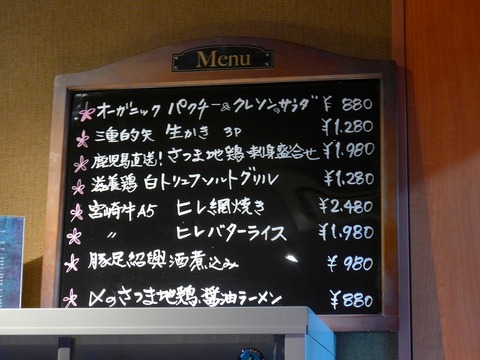 Menu
オーガニック パクチー&クレソンのサラダ ¥880
三重的矢 生かき 3P ¥1.280
鹿児島直送!さつま地鶏 刺身盛合せ ¥1.980
滋養鶏 白トリュフソルトグリル ¥1.280
宮崎牛A5 ヒレ網焼き ¥2.480
〃 ヒレバターライス ¥1.980
豚足紹興酒煮込み ¥980
〆のさつま地鶏、醤油ラーメン ¥880